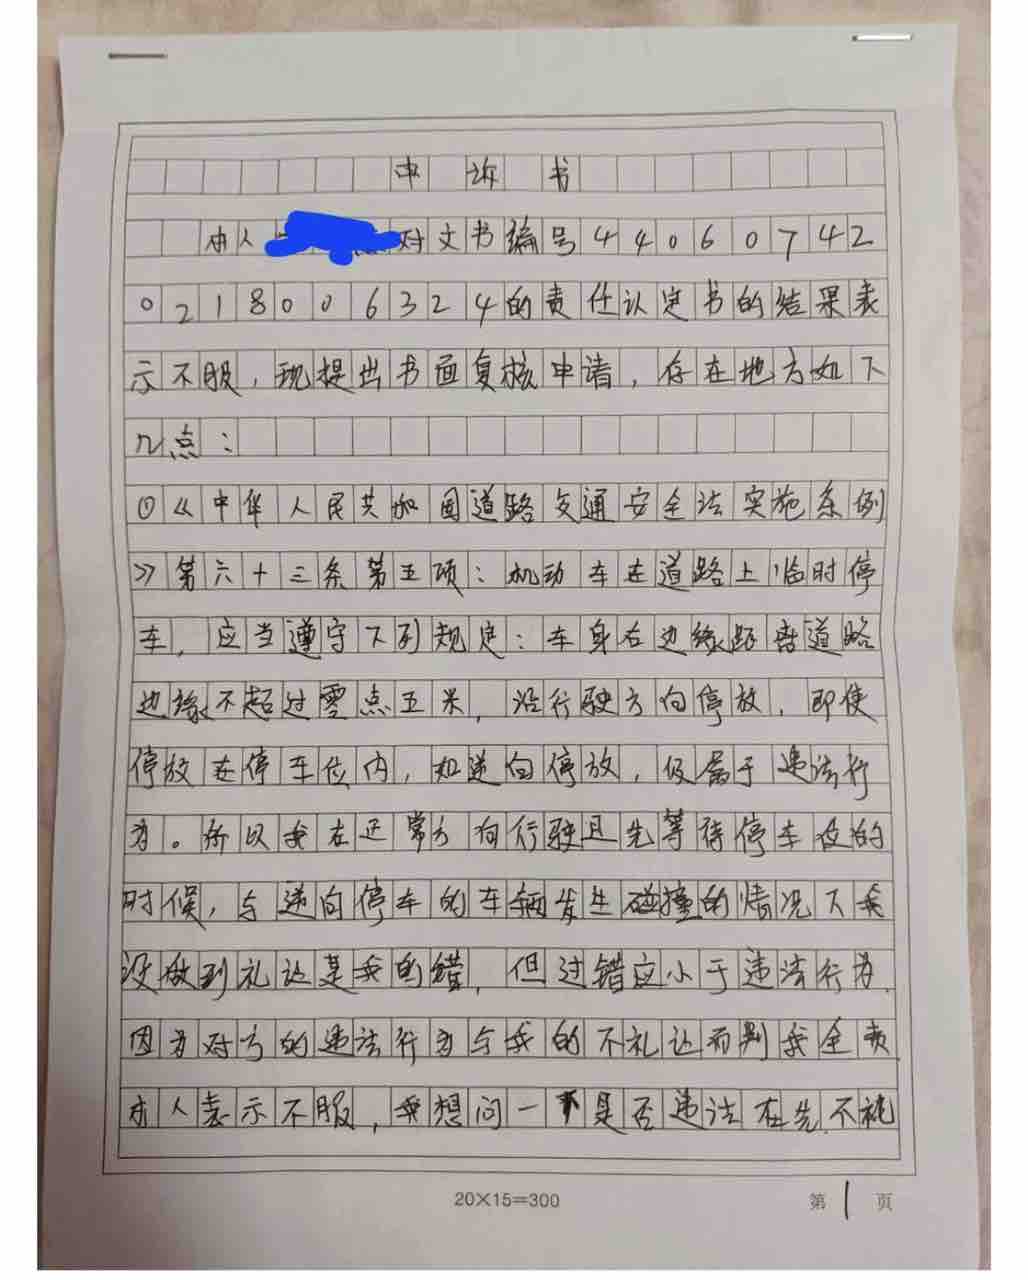 申诉书
本人对文书编号44060742
0218006324的责任认定书的结果表
示不服，现提出书面复核申请，存在地方如下
几点：
①《中华人民共和国道路交通安全法实施条例
》第六十三条第五项：机动车在道路上临时停
车，应当遵守下列规定：车身右边缘距离道路
边缘不超过零点五米，沿行驶方向停放，即使
停放在停车位内，如逆向停放，仍属于违法行
为。所以我在正常方向行驶且先等待停车位的
时候，与逆向停车的车辆发生碰撞的情况下我
没做到礼让是我的错，但过错应小于违法行为，
因为对方的违法行为与我的不礼让而判我全责
本人表示不服，我想问一下是否违法在先，不礼
20×15=300
第1页